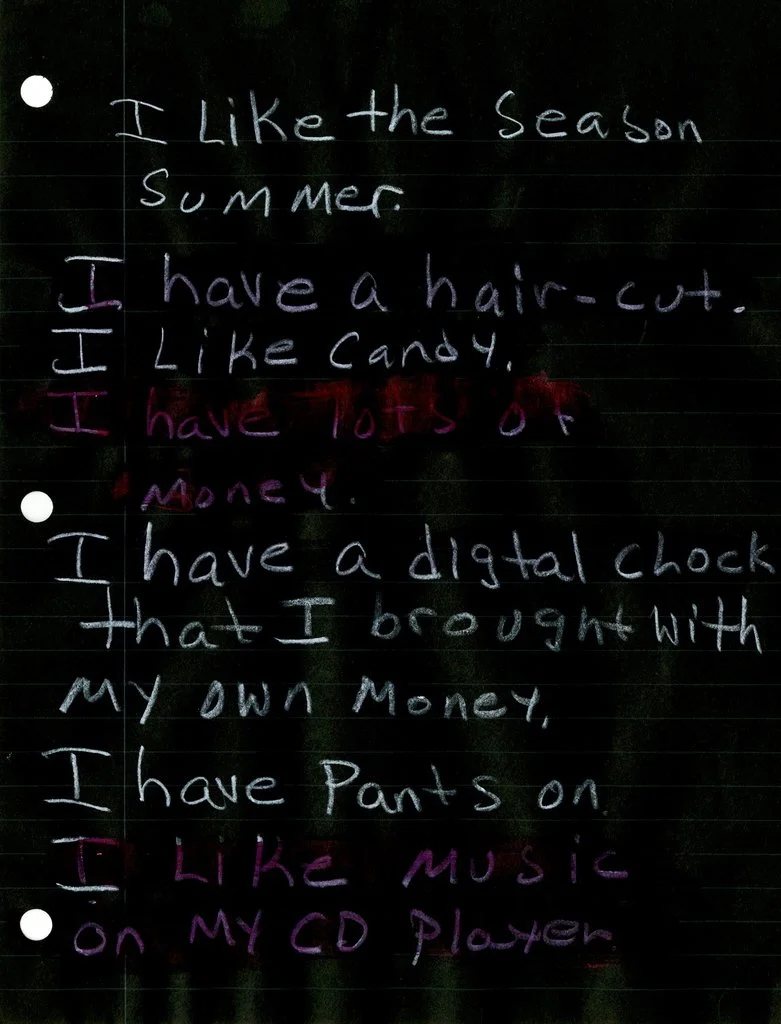 I Like the Season
Summer.
I have a hair-cut.
I Like Candy.
I have lots of
Money.
I have a digtal chock
that I brought with
My own Money,
I have Pants on.
I Like Music
on My CD Player